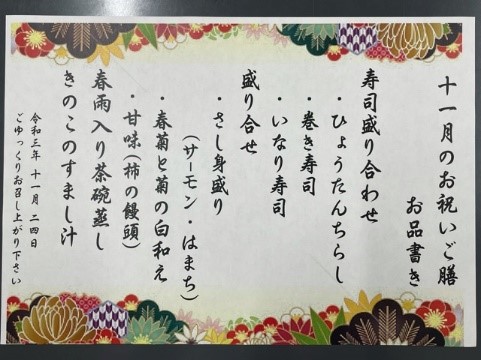 十一月のお祝いご膳
お品書き
寿司盛り合わせ
・ひょうたんちらし
・巻き寿司
・いなり寿司
盛り合せ
・さし身盛り
(サーモン・はまち)
・春菊と菊の白和え
・甘味(柿の饅頭)
春雨入り茶碗蒸し
きのこのすまし汁
令和三年 十一月 二四日
ごゆっくりお召し上がり下さい